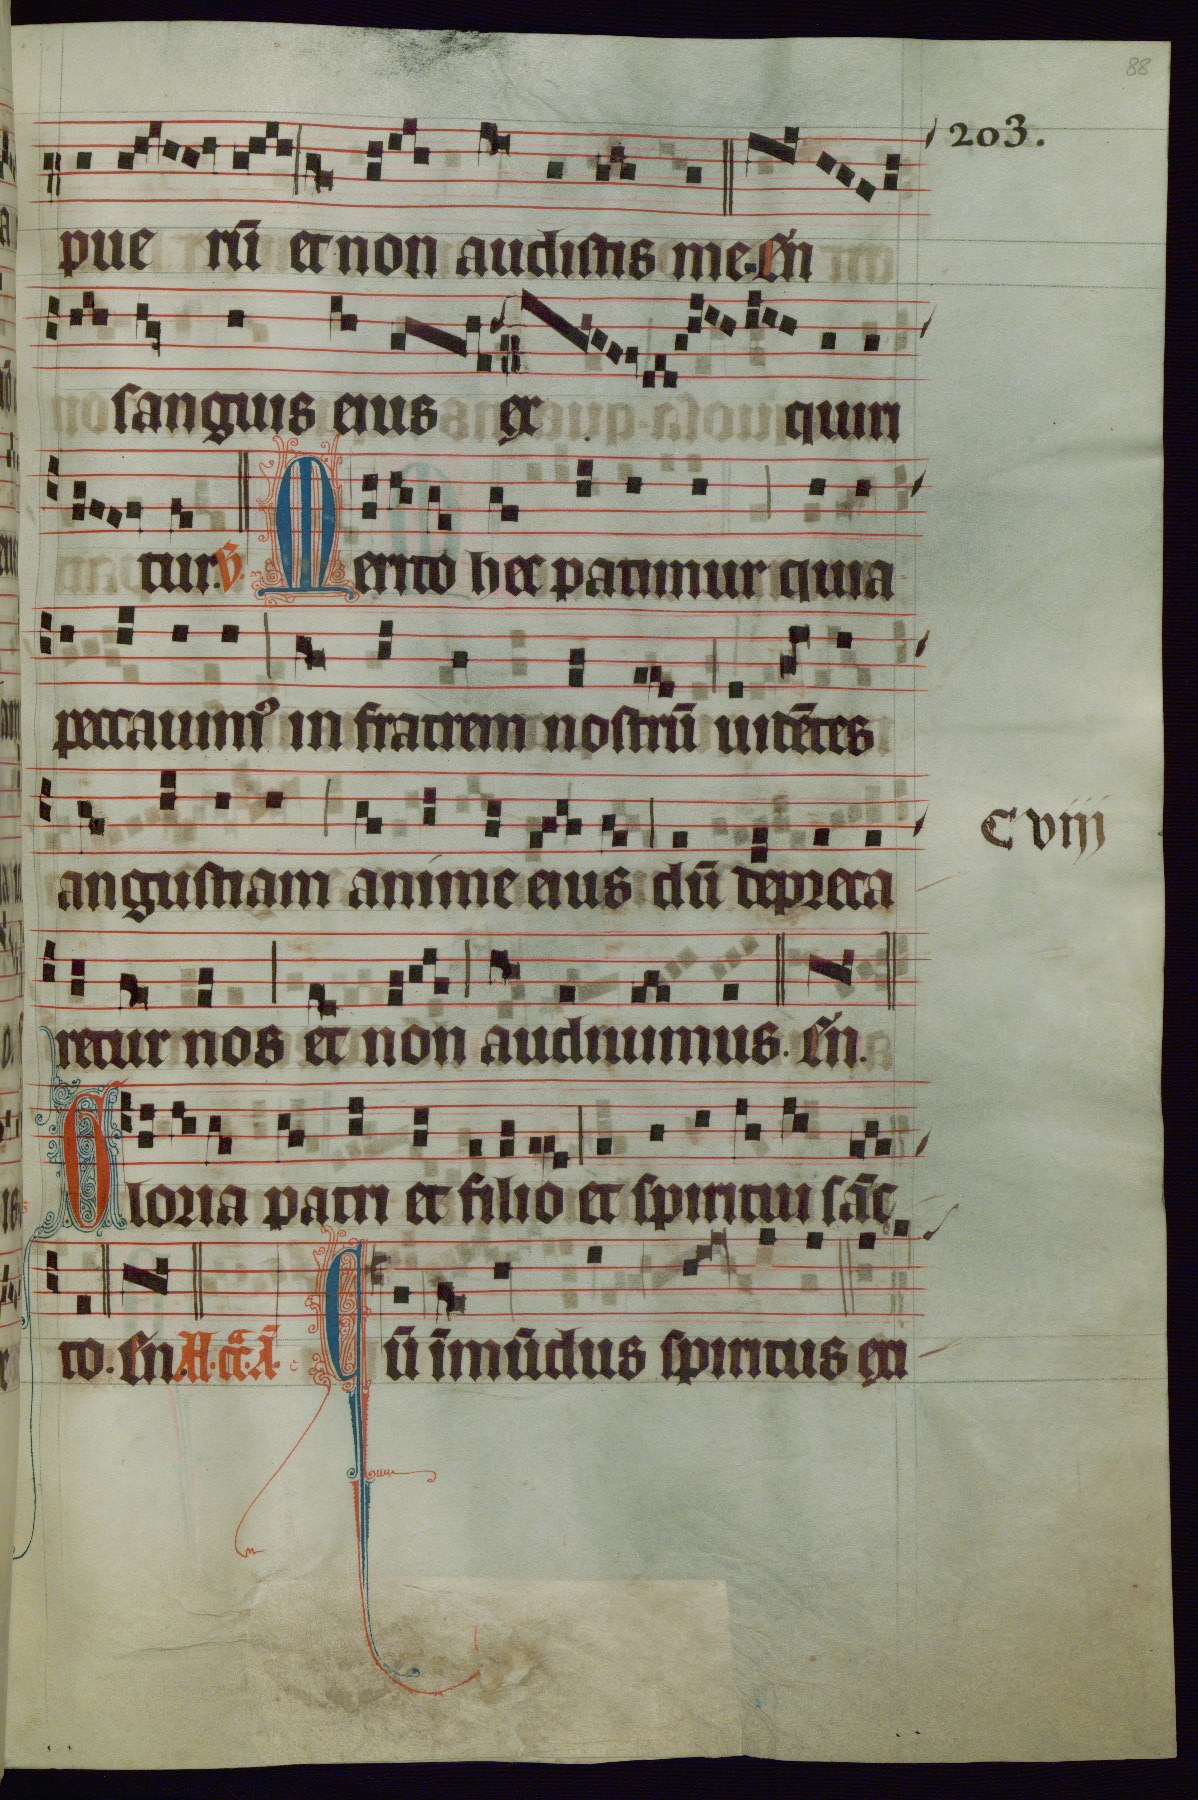 88
203.
pue rū et non audistis me. En
sanguis eius ex quiri
tur. V. Merito hec patimur quia
peccauimꝰ in fratrem nostrū uidētes
C viij
angustiam anime eius dū depreca
retur nos et non audiuimus. En.
Gloria patri et filio et spiritui sāc
to. En
Cū īmūdus spiritus exi